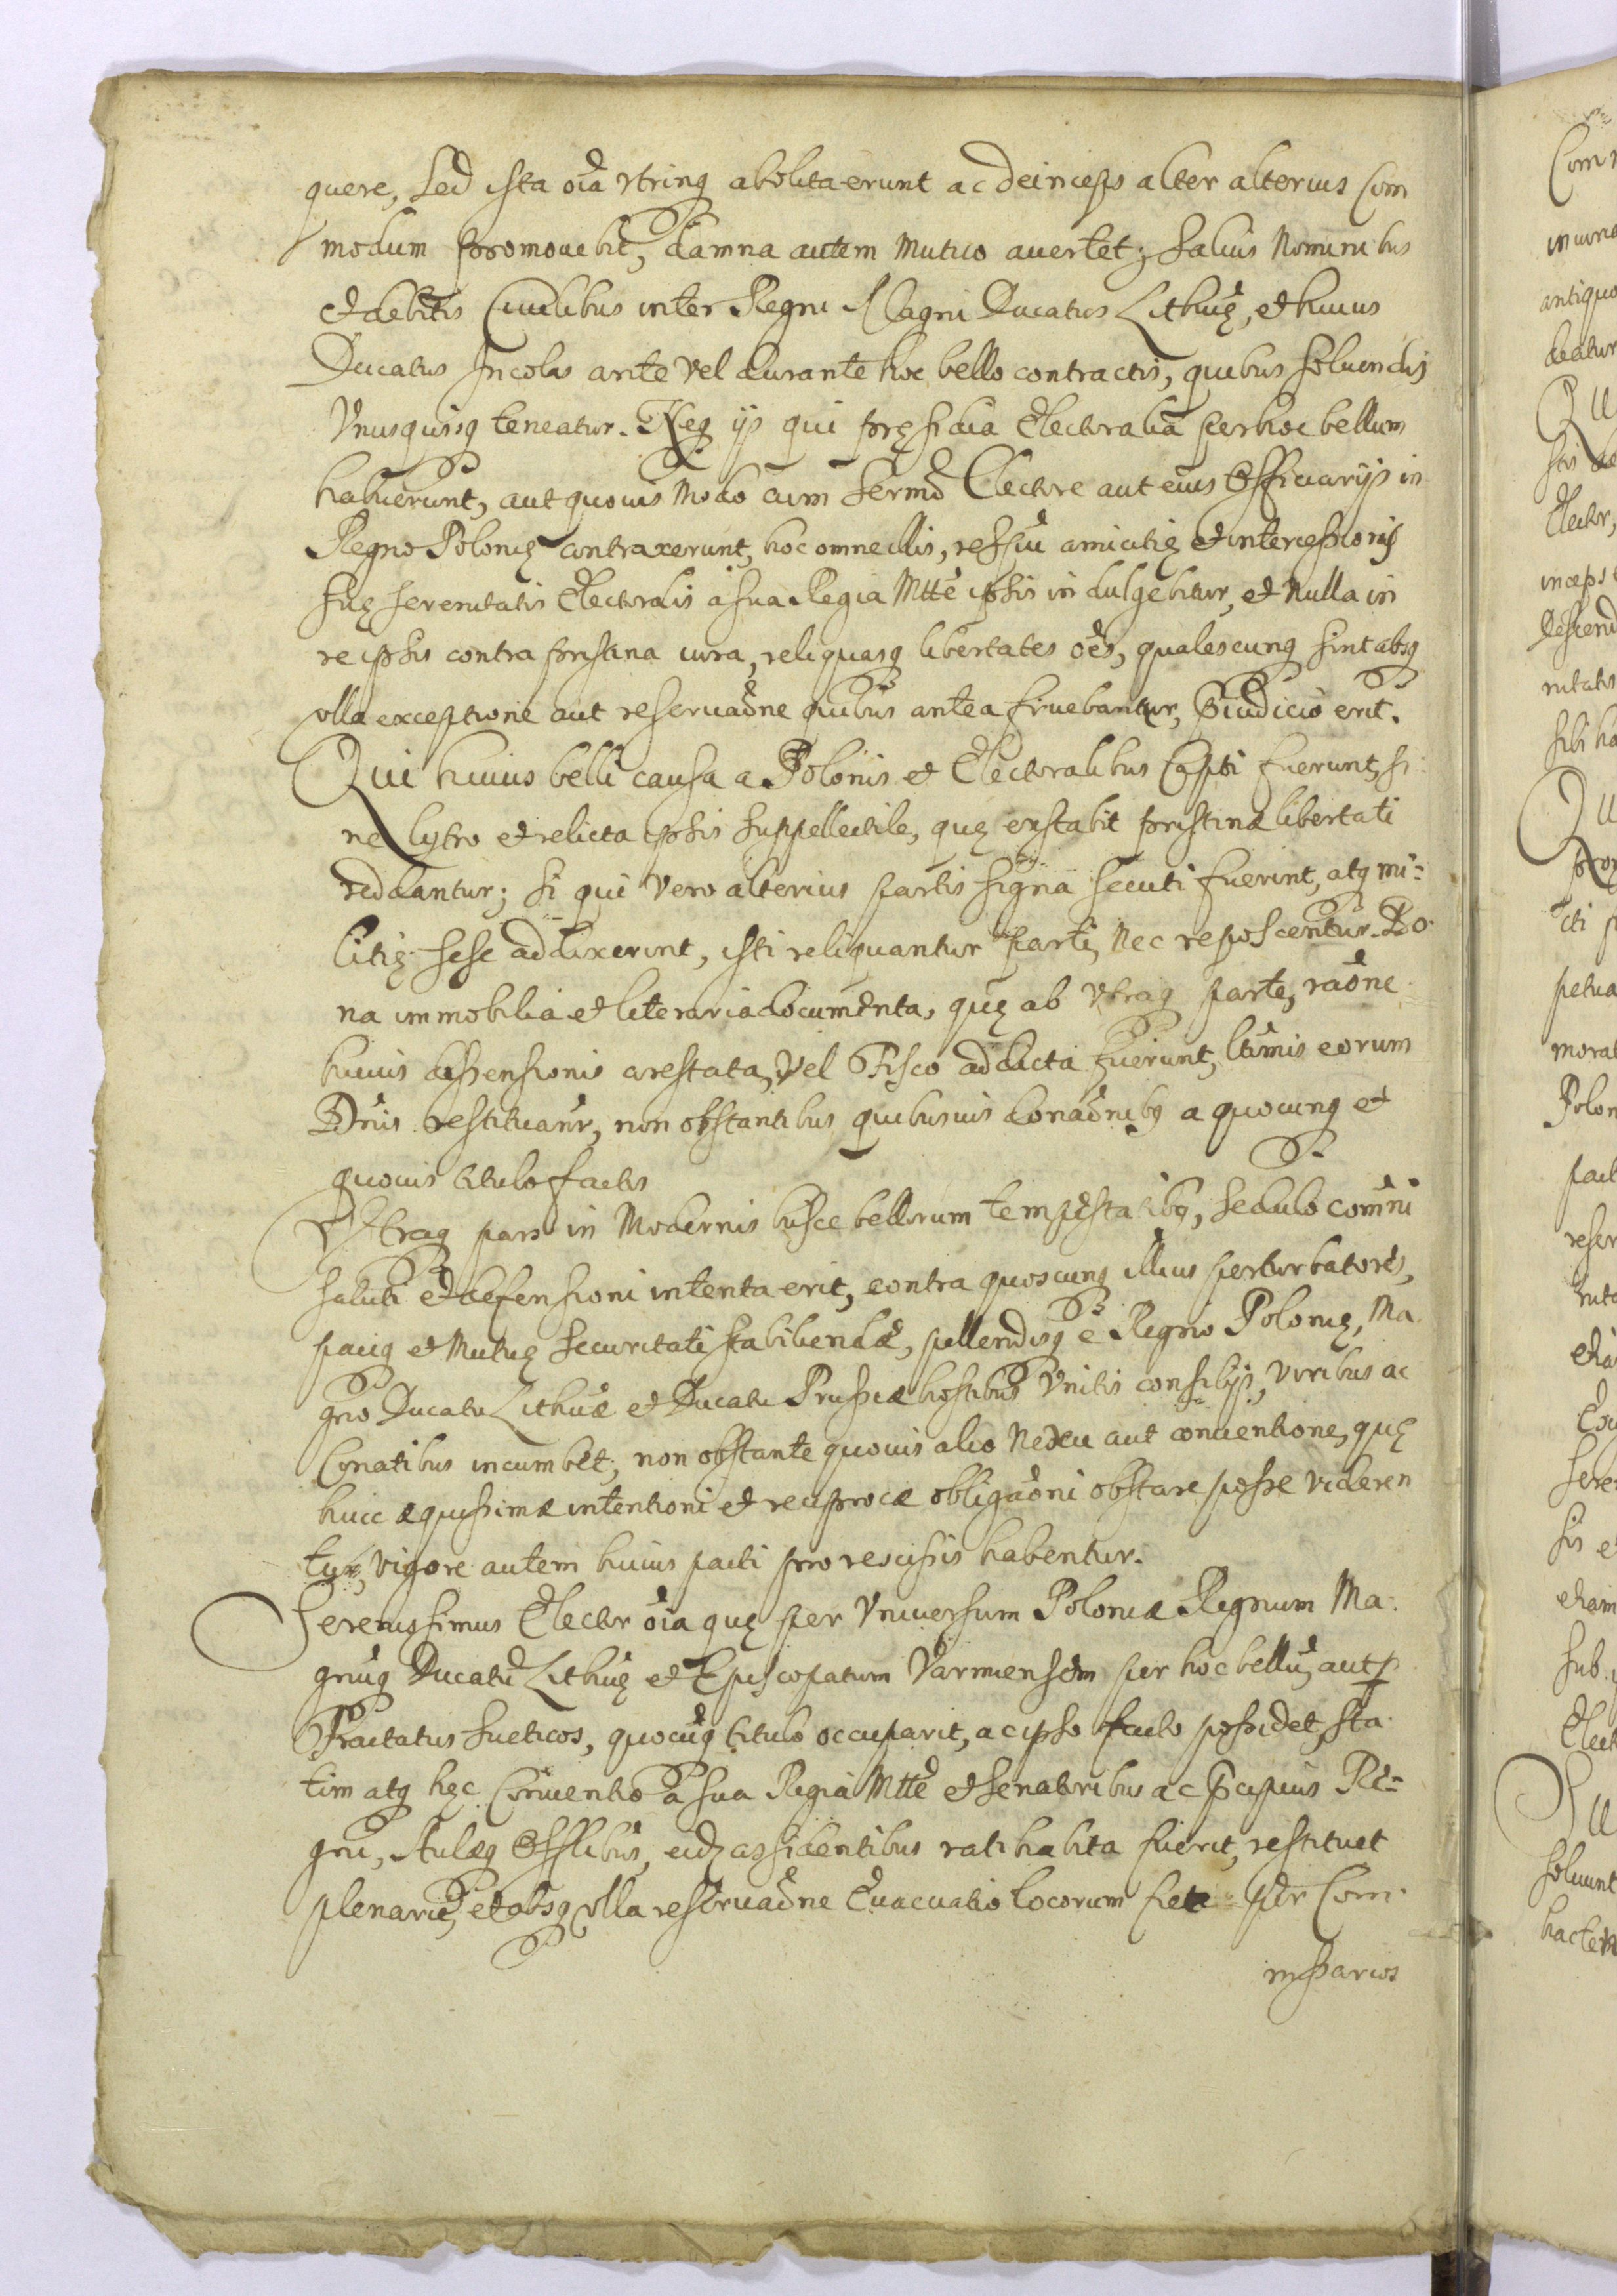 quere, sed ista oīa vtrinq abolita erunt ac deinceps alter alterius Com
modum promouebit, damna autem mutuo auertet; saluis Nominibus
et debitis Ciuilibus inter Regni Magni Ducatus Lithuę, et huius
Ducatus Incolas ante vel durante hoc bello contractis, quibus soluendis
Vnusquisq teneatur. Neq ijs qui pręsidia Electoralia per hoc bellum
habuerunt, aut quouis Modo cum Sermo Electore aut eius Officiarijs in
Regno Polonię contraxerunt, hoc omne illis, respũ amicitię et intercessionis
suę serenitatis Electoralis à sua Regia Mtte ipsis indulgebitur, et nulla in
re ipsis contra pristina iura, reliquasq libertates oēs, qualescunq sint absq
vlla exceptione aut reseruaõne quibus antea fruebantur, p̄iudicio erit.
Qui huius belli causa a Polonis et Electoralibus Capti fuerunt, si
ne lytro et relicta ipsis suppellectile, quę exstabit pristinæ libertati
reddantur; si qui vero alterius partis signa secuti fuerint, atq mi-
litię sese addixerint, isti reliquantur parti, nec reposcentur. Bo
na immobilia et literaria documenta, quę ab vtraq parte, raõne
huius dissensionis arestata, vel Fisco addicta fuerunt, ltimis eorum
Dn̄is restituanr, non obstantibus quibusuis donaõnibq a quocunq et
quouis titulo factis
Vtraq pars in Modernis hisce bellorum tempestatibq, sedulò com̄ni
saluti et defensioni intenta erit, contra quoscunq illius perturbatores,
paciq et Mutuę securitati stabiliendæ, pellendisq è Regno Polonię, Ma
gno Ducatu Lithuæ et Ducatu Prussiæ hostibus Vnitis consilijs, viribus ac
Conatibus incumbet; non obstante quouis alio Nexu aut conuentione, quę
huic æquissimæ intentioni et reciprocæ obligaõni obstare posse videren
tur, vigore autem huius pacti pro rescissis habentur.
Serenissimus Elector oīa quę per Vniuersum Poloniæ Regnum Ma
gnūq Ducatū Lithuę et Episcopatum Varmiensem per hoc bellū, aut p
Tractatus Sueticos, quocūq titulo occuparit, ac ipso facto possidet, sta
tim atq hęc Conuentio à sua Regia Mtte et Senatoribus ac p̄cipuis Re-
gni, Aulæq Offlibus, eidz assidentibus ratihabita fuerit, restituet
plenariè, et absq vlla reseruaõne Euacuatio locorum fiet per Com
missarios